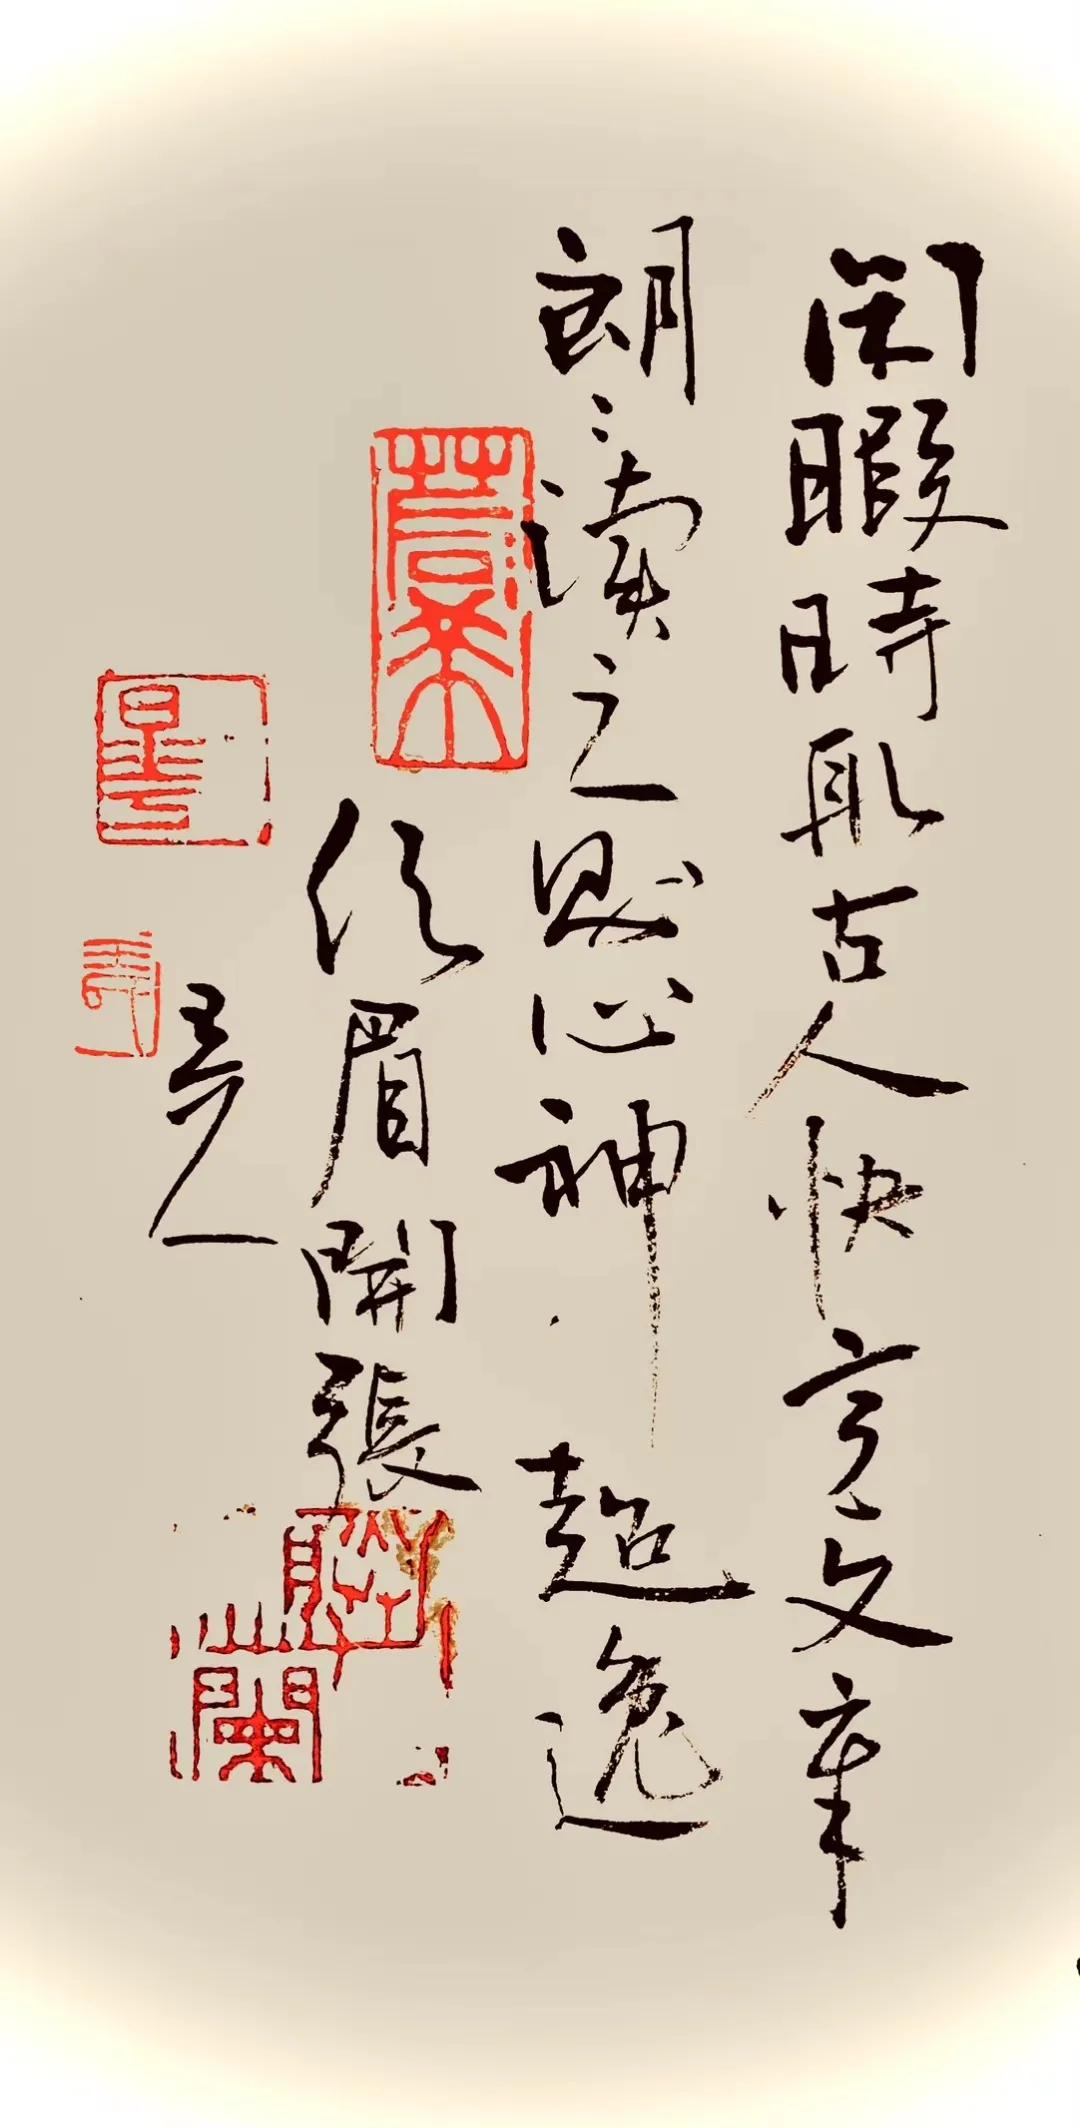 閑暇時取古人快意文章
朗〻讀之則心神超逸
須眉開張